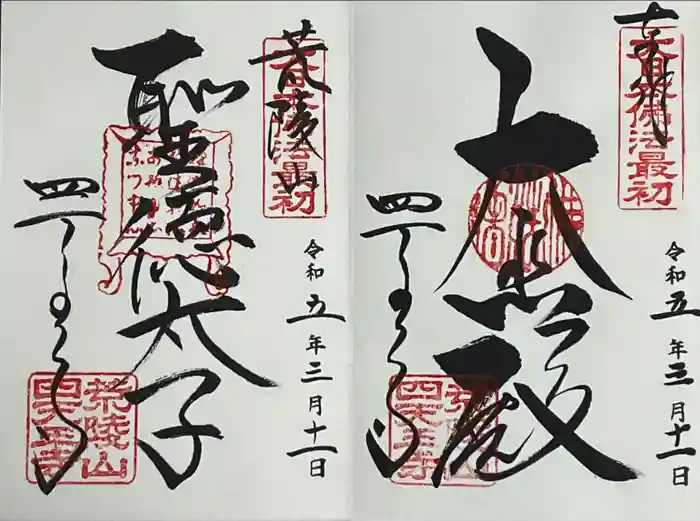 大日本佛法最初
令和五年三月十一日
殿
四天王寺
荒陵山
四天王寺
荒陵山
大日本佛法最初
令和五年三月十一日
聖徳太子
四天王寺
荒陵山
四天王寺